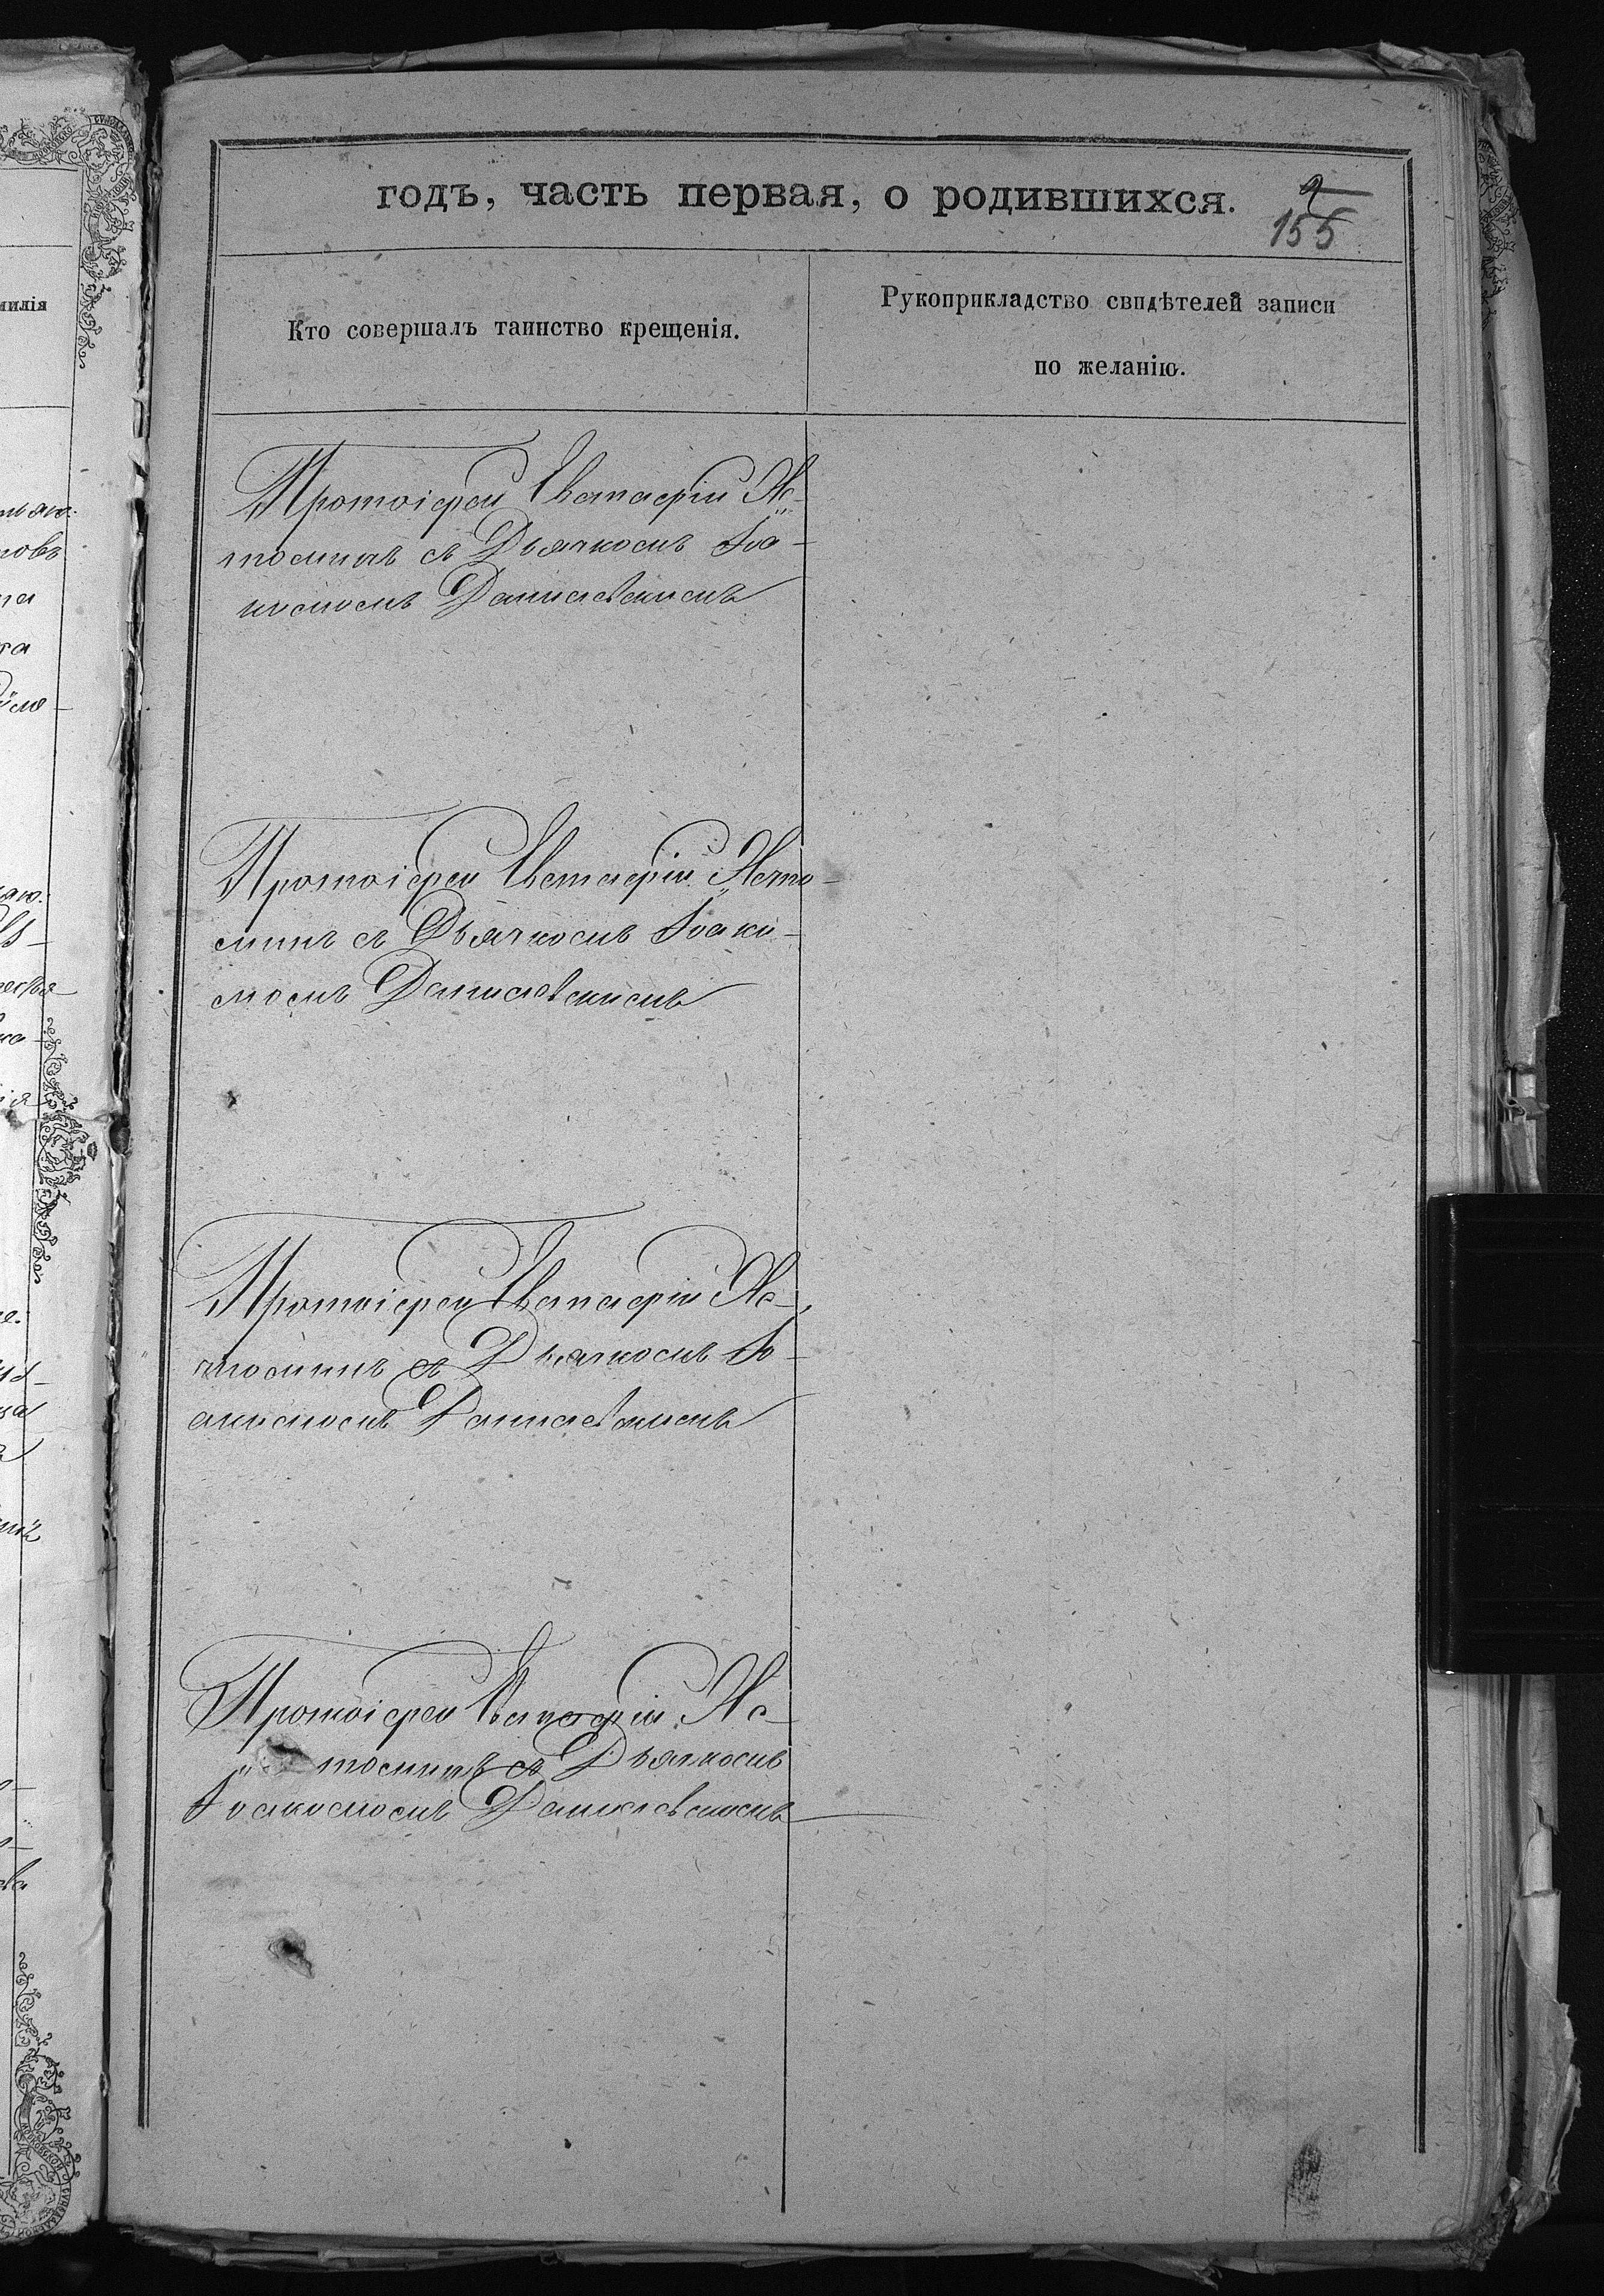 годъ, часть первая, о родившихся.
2
155
Кто совершалъ таинство крещенія.
Рукоприкладство свидѣтелей записи
по желанію.
Протоіерей Евстафій Ис-
томинъ съ Дьячкомъ Іоа-
кимомъ Данилевскимъ
Протоіерей Евстафій Исто-
минъ съ Дьячкомъ Іоаки-
момъ Данилевскимъ
Протоіерей Евстафій Ис-
томинъ съ Дьячкомъ Іо-
акимомъ Данилевскимъ
Протоіерей Евстафій Ис-
томинъ съ Дьячкомъ
Іоакимомъ Данилевскимъ
милія